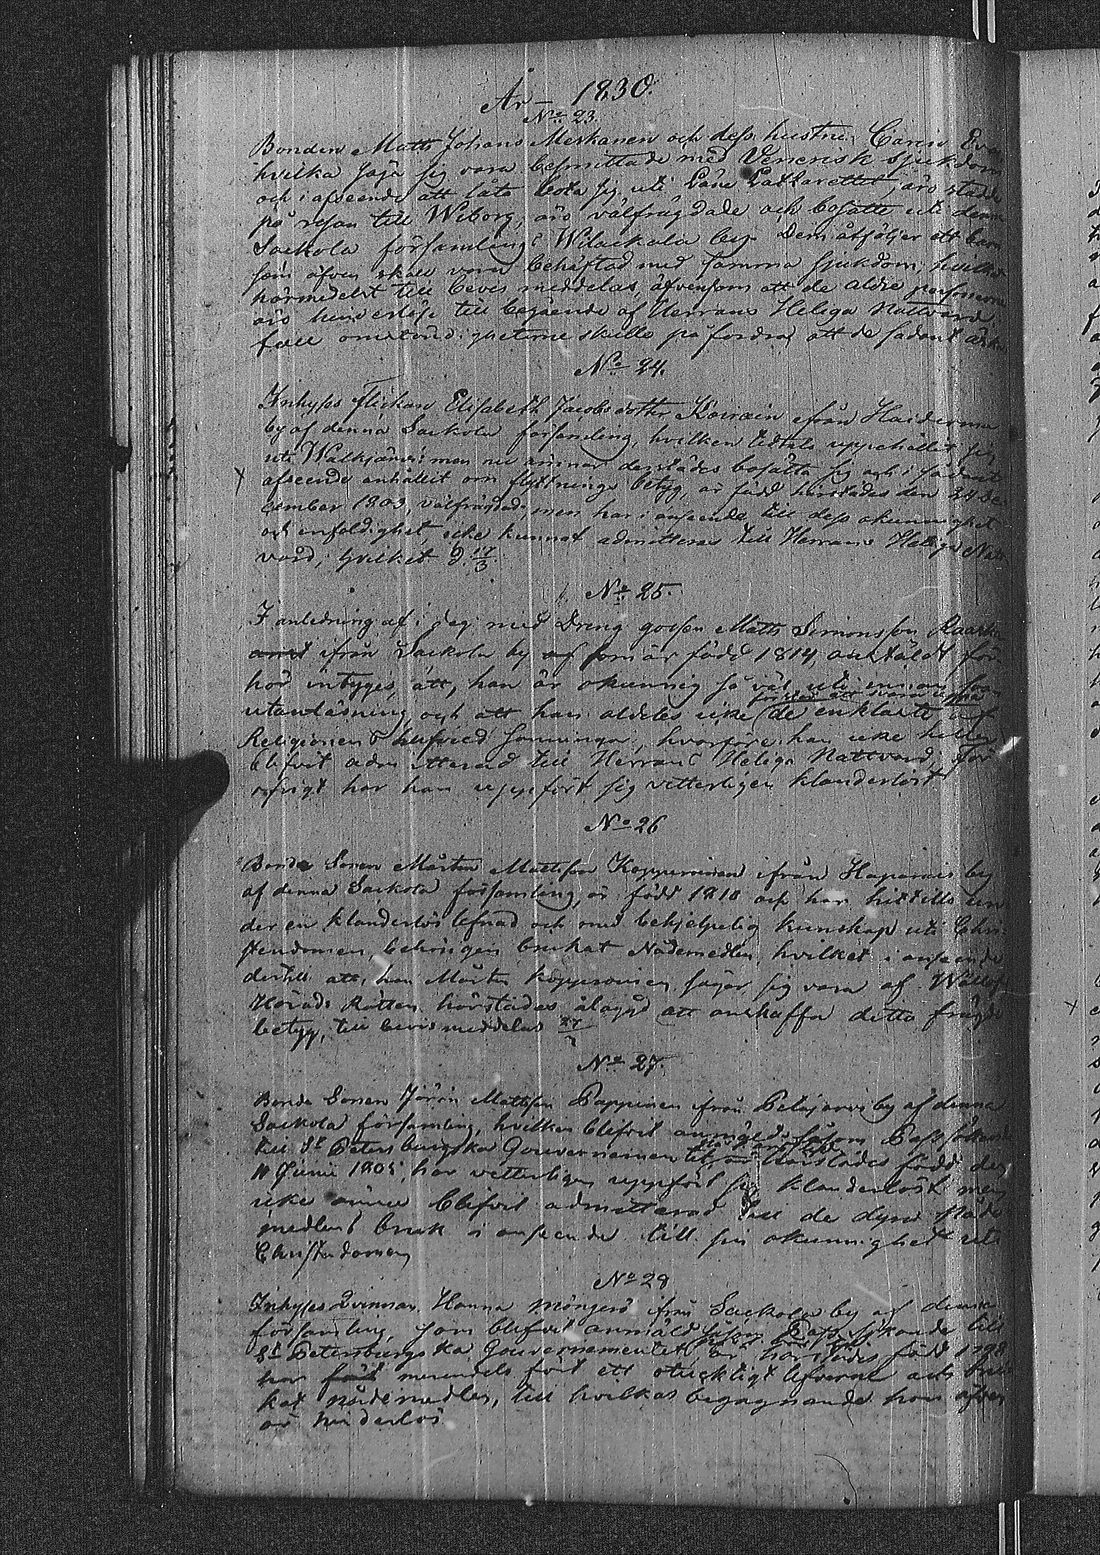 År 1830.
No 23.
Bonden Matts Johans Meskanen och dess hustru Carin Eva
hvilka säja sig vara besmittade med Venerisk sjukdom
och i afseende att låta bota sig uti Läne Lazarettet, äro stadde
på resan till Wiborg, äro välfrägdade och bosatte uti denna
Sackola församlings Wilackala by. Dem åtföljer ett barn
som äfven skall vara behäftad med samma sjukdom, hvilket
härmedelst till bevis meddelas, äfvensom att de äldre personerne
äro hinderlöse till begående af Herrans Heliga Nattvard
fall omständigheterne skulle påfordra att de sådant
No 24.
Inhyses Flickan Elisabeth Jacobsdotter ifrån Haiderma
by af denna Sackola församling, hvilken tidtals uppehållit sig
uti Walkjärvi men nu ärnar derstädes bosätta sig och i sådant
afseende anhållit om flyttnings betyg, är född härstädes den 28 De-
cember 1803, välfrägdad men har i anseende till dess okunnighet
och enfaldighet icke kunnat admitteras till Herrans Heliga Natt-
vard, hvilket d. 17/3.
No 25.
I anledning af i dag med Dreng gossen Matts Simonsson
ifrån Sackola by som är född 1814, anstäldt för-
hör intygas, att han är okunnig så väl uti
utanläsning, och att han aldeles icke de enklaste af
Religionens sanningar, hvarföre han icke heller
blifvit admitterad till Herrans Heliga Nattvard, För
öfrigt har han uppfört sig vetterligen klanderlöst
No 26
Bonde Sonen Mårten Mattsson Kopperoinen ifrån Haparais by
af denna Sackola församling, är född 1810 och har hittills un-
der en klanderlös lefnad och med behjelpelig kunskap uti Chri-
stendomen behörigen brukat Nådemedlen, hvilket i anseende
dertill att, han Mårten Kopperoinen säger sig vara af Wällof.
Härads Rätten härstädes ålagd att anskaffa detta frägde
betyg, till bevis meddelas 27/3
No 27.
Bonde Sonen Jöran Mattsson Pappinen ifrån Pelajärvi by af denna
Sackola församling, hvilken blifvit anmäld såsom Pass sökande
till St Petersburgska Gouvernementet, är härstädes född den
11 Junii 1805, har vetterligen uppfört sig klanderlöst men
icke ännu blifvit admitterad till de dyra Nåde
medlens bruk i anseende till sin okunnighet uti
Christendomen
No 28
Inhyses Qvinnan Hanna Mönges ifrån Sackola by af denna
församling, som blifvit anmäld såsom Pass sökande till
St Petersburgska Gouvernementet är härstädes född 1798
har merendels fört ett otuktigt lefverne och bru-
kat nådemedlen, till hvilkas begagnande hon äfven
är hinderlös